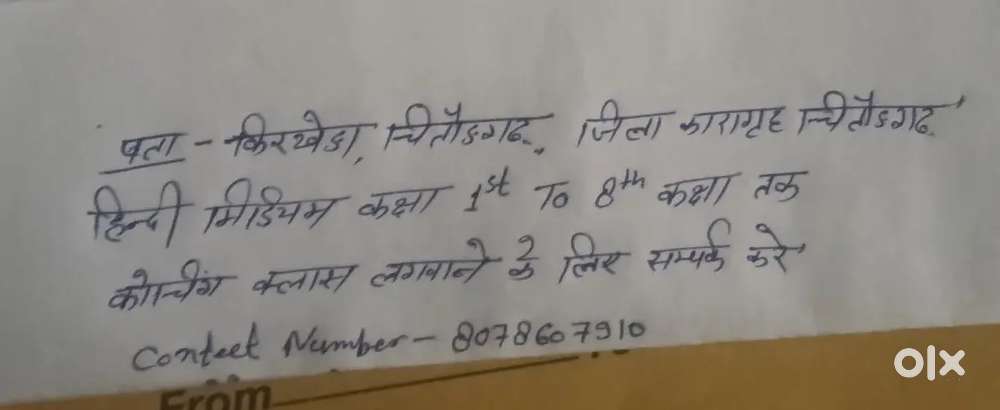 पता - किरखेडा, चितौडगढ, जिला कारागृह चितौडगढ
हिन्दी मिडियम कक्षा 1st To 8th कक्षा तक
कोचिंग क्लास लगवाने के लिए सम्पर्क करे
Contect Number - 8078607910
From
OLX